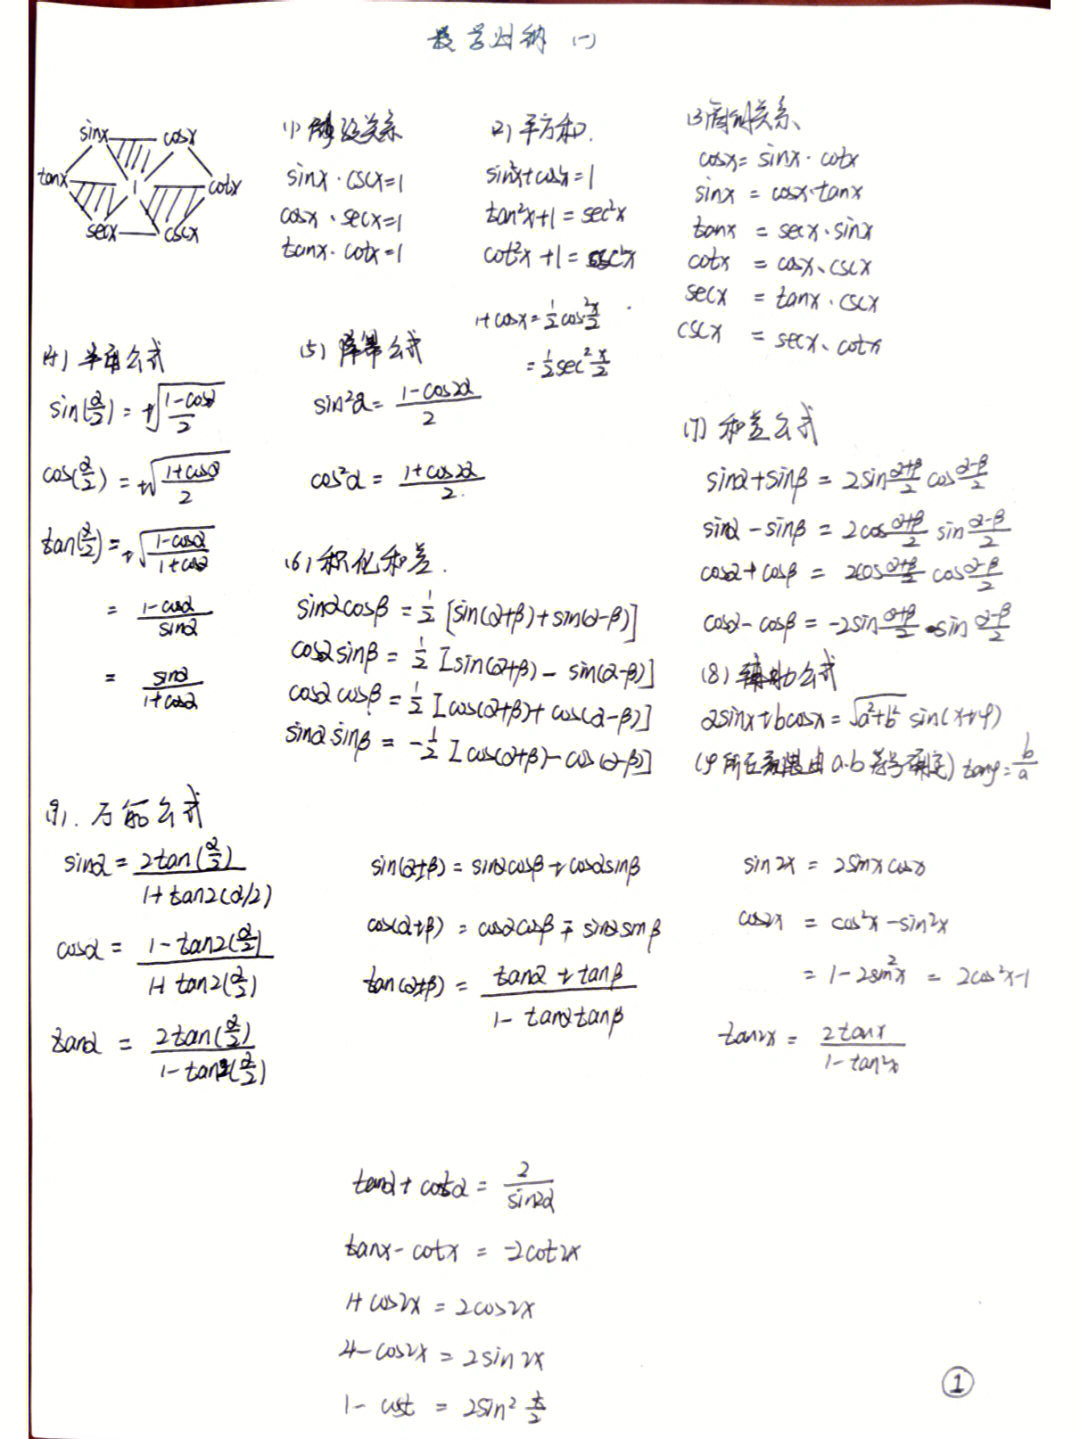 数学归纳 (一)
sinx cosx
tanx 1 cotx
secx cscx
(1) 倒数关系
sinx · cscx=1
cosx · secx=1
tanx · cotx=1
(2) 平方和.
sin²x+cos²x=1
tan²x+1=sec²x
cot²x+1=csc²x
1+cosx=½cos²x/2
=½sec²x/2
(3) 商的关系、
cosx= sinx · cotx
sinx = cosx·tanx
tanx = secx·sinx
cotx = cosx·cscx
secx = tanx·cscx
cscx = secx·cotx
(4) 半角公式
sin(α/2)=±√((1-cosα)/2)
cos(α/2)=±√((1+cosα)/2)
tan(α/2)=±√((1-cosα)/(1+cosα))
= (1-cosα)/sinα
= sinα/(1+cosα)
(5) 降幂公式
sin²α= (1-cos2α)/2
cos²α= (1+cos2α)/2.
(6) 积化和差.
sinαcosβ=½[sin(α+β)+sin(α-β)]
cosαsinβ=½[sin(α+β)-sin(α-β)]
cosαcosβ=½[cos(α+β)+cos(α-β)]
sinαsinβ=-½[cos(α+β)-cos(α-β)]
(7) 和差公式
sinα+sinβ = 2sin (α+β)/2 cos (α-β)/2
sinα-sinβ = 2cos (α+β)/2 sin (α-β)/2
cosα+cosβ = 2cos (α+β)/2 cos (α-β)/2
cosα-cosβ = -2sin (α+β)/2 ·sin (α-β)/2
(8) 辅助公式
asinx+bcosx=√(a²+b²) sin(x+φ)
(φ所在象限由a·b符号确定) tanφ=b/a
(9). 万能公式
sinα= 2tan(α/2)/(1+tan2(α/2))
cosα= (1-tan2(α/2))/(1+tan2(α/2))
tanα = 2tan(α/2)/(1-tan2(α/2))
sin(α±β)= sinαcosβ±cosαsinβ
cos(α±β)= cosαcosβ∓sinαsinβ
tan(α+β)= (tanα+tanβ)/(1-tanαtanβ)
sin2x = 2sinxcosx
cos2x = cos²x-sin²x
= 1-2sin²x = 2cos²x-1
tan2x = 2tanx/(1-tan²x)
tanα+cotα = 2/sin2α
tanx-cotx = -2cot2x
1+cos2x = 2cos2x
1-cos2x = 2sin2x
1-cost = 2sin² t/2
①